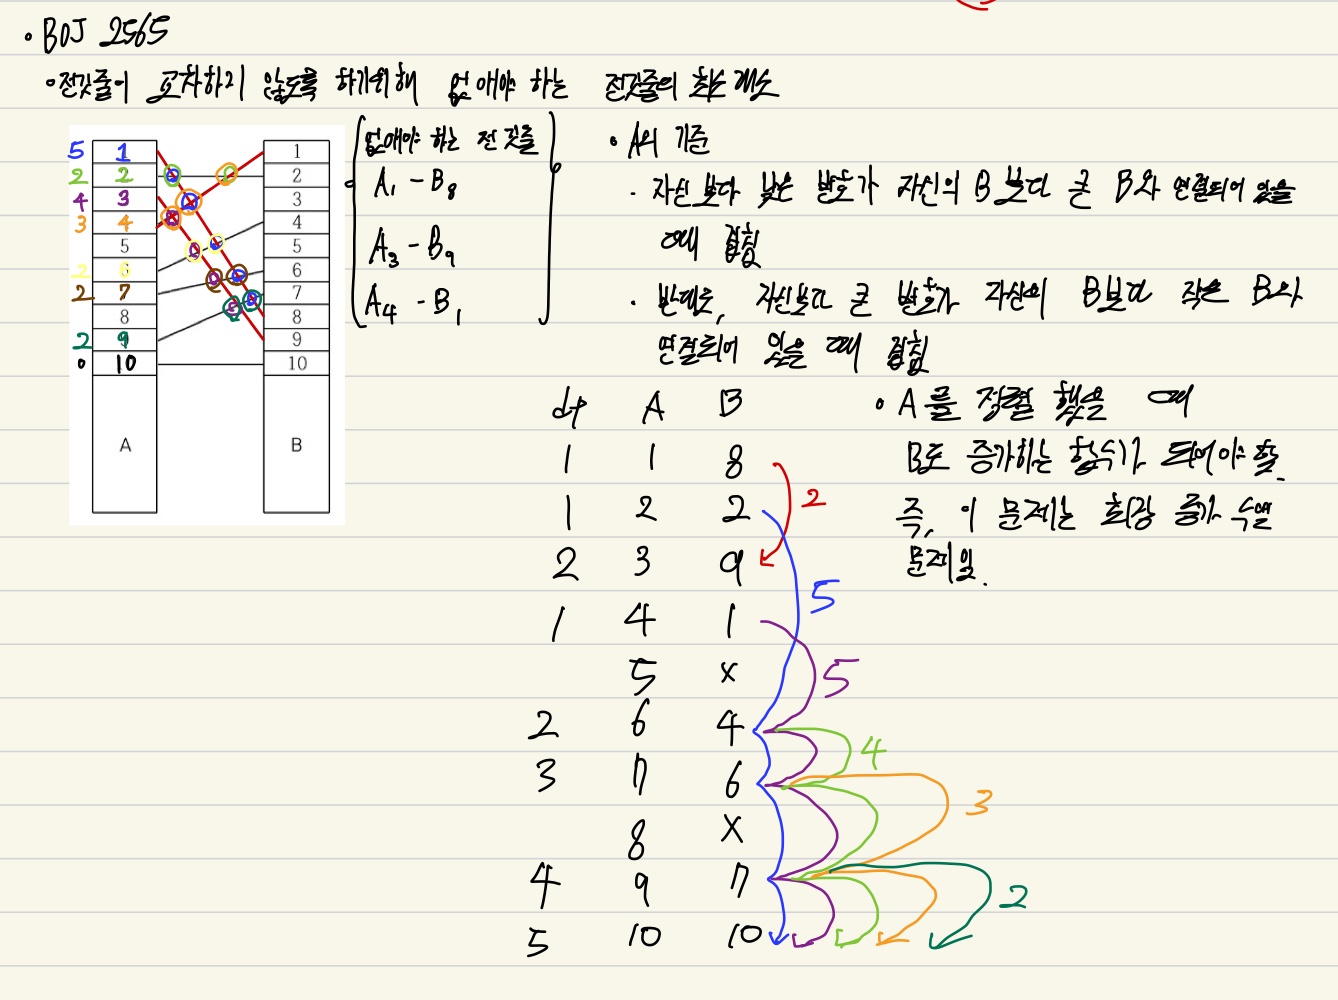 • BOJ 2565
• 전깃줄이 교차하지 않도록 하기위해 없애야 하는 전깃줄의 최소 개수
5 1 1
2 2 2
4 3 3
3 4 4
5 5
2 6 6
2 7 7
8 8
2 9 9
0 10 10
A B
없애야 하는 전깃줄
A₁ - B₈
A₃ - B₉
A₄ - B₁
• A의 기준
· 자신보다 낮은 번호가 자신의 B보다 큰 B와 연결되어 있을
때 겹침
· 반대로, 자신보다 큰 번호가 자신의 B보다 작은 B와
연결되어 있을 때 겹침
dp A B
1 1 8
1 2 2
2 3 9
1 4 1
5 x
2 6 4
3 7 6
8 X
4 9 7
5 10 10
2
5
5
4
3
2
• A를 정렬 했을 때
B도 증가하는 함수가 되어야 함.
즉, 이 문제는 최장 증가 수열
문제임.